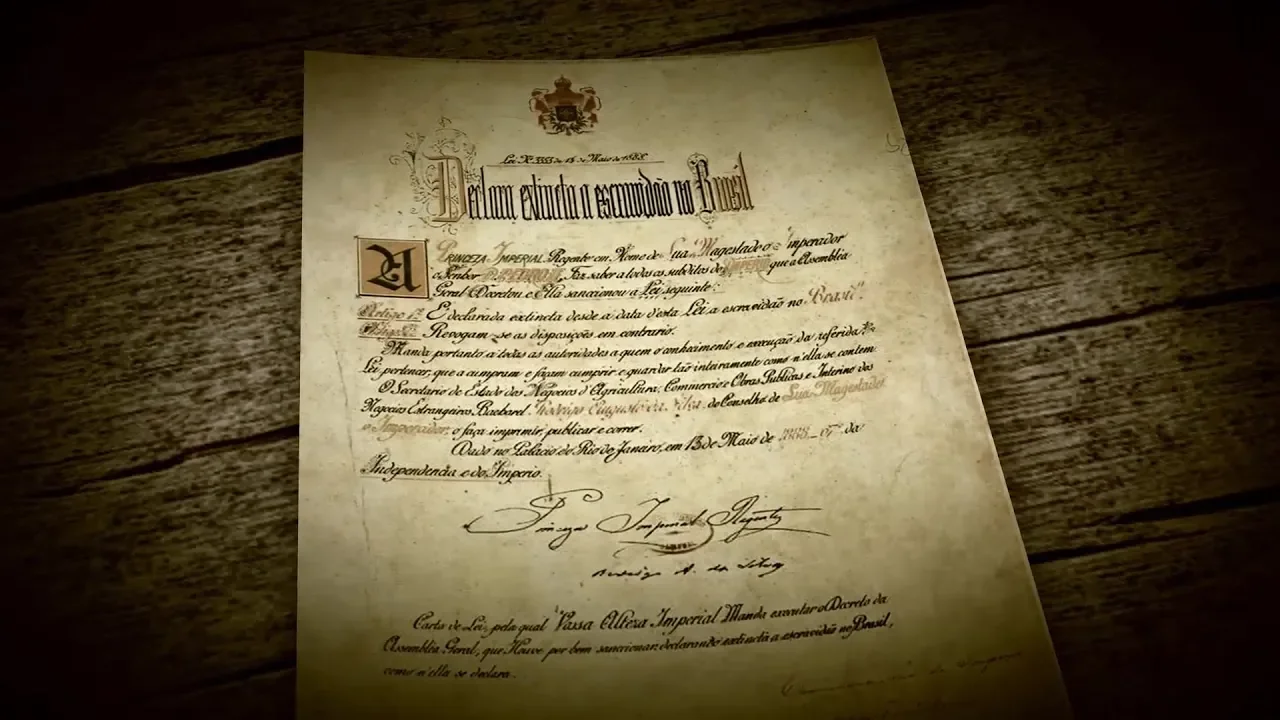 Lei Nº 3353 de 13 de Maio de 1888.
Declara extincta a escravidão no Brasil
A PRINCEZA IMPERIAL Regente em Nome de Sua Magestade o Imperador
o Senhor D. PEDRO II, Faz saber a todos os subditos do IMPERIO que a Assembléa
Geral Decretou e Ella sanccionou a Lei seguinte:
Artigo 1º É declarada extincta desde a data d'esta Lei a escravidão no Brasil.
Artigo 2º Revogam-se as disposições em contrario.
Manda portanto a todas as autoridades a quem o conhecimento e execução da referida
Lei pertencer, que a cumpram e façam cumprir e guardar tão inteiramente como n'ella se contem
O Secretario de Estado dos Negocios d'Agricultura, Commercio e Obras Publicas e Interino dos
Negocios Estrangeiros Bacharel Rodrigo Augusto da Silva do Conselho de Sua Magestade
o Imperador, o faça imprimir, publicar e correr.
Dado no Palacio do Rio de Janeiro, em 13 de Maio de 1888_67º da
Independencia e do Imperio.
Princeza Imperial Regente
Rodrigo A. da Silva
Carta de Lei, pela qual Vossa Alteza Imperial Manda executar o Decreto da
Assembléa Geral, que Houve por bem sanccionar declarando extincta a escravidão no Brasil,
como n'ella se declara.